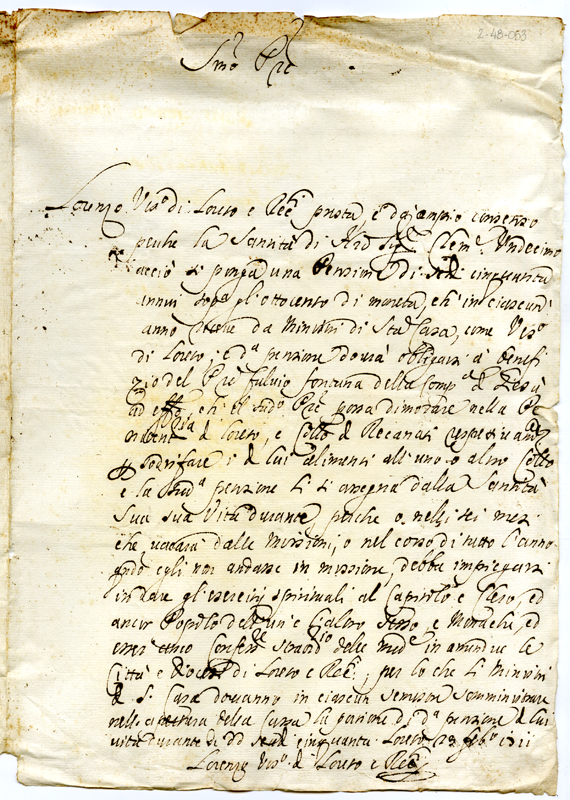 2-48-053
Smo Pre
Lorenzo Vesco di Loreto e Recti presta, e dà ampio consenso
perche la Santità di N'ro Sige Clemte Undecimo
acciò si ponga una Penzione di scudi cinquanta
annui sopra gl'ottocento di moneta, che in ciascun
anno riceve da Ministri di Sta Casa, come Vesco
di Loreto; e da penzione dovrà obligarsi à benefi
zio del Pre Fulvio Fontana della Compa di Giesù
ad effo, che il sudo Pre possa dimorare nella Pe
di Loreto, e Collo di Recanati
sodisfare i di lui alimenti all'uno o altro Collo
e la suda penzione li si assegna dalla Santità
Sua sua vita durante, perche o nelli sei mesi
che vacarà dalle missioni, o nel corso di tutto l'anno
egli non andasse in missione, debba impiegarsi
in dare gl'esercizij spirituali al Capitolo e Clero, ed
ancor Popolo dell'un' e l'altro sesso e Monache, ed
esser anco Confesre straordio delle mede in amendue le
Città e Diocesi di Loreto e Recti; per lo che li Ministri
di S. Casa dovranno in ciascun semestre somministrare
della Cassa la porzione di da penzione di lui
vita durante di dd scudi cinquanta. Loreto 23 febo 1711
Lorenzo Vesco di Loreto e Recti